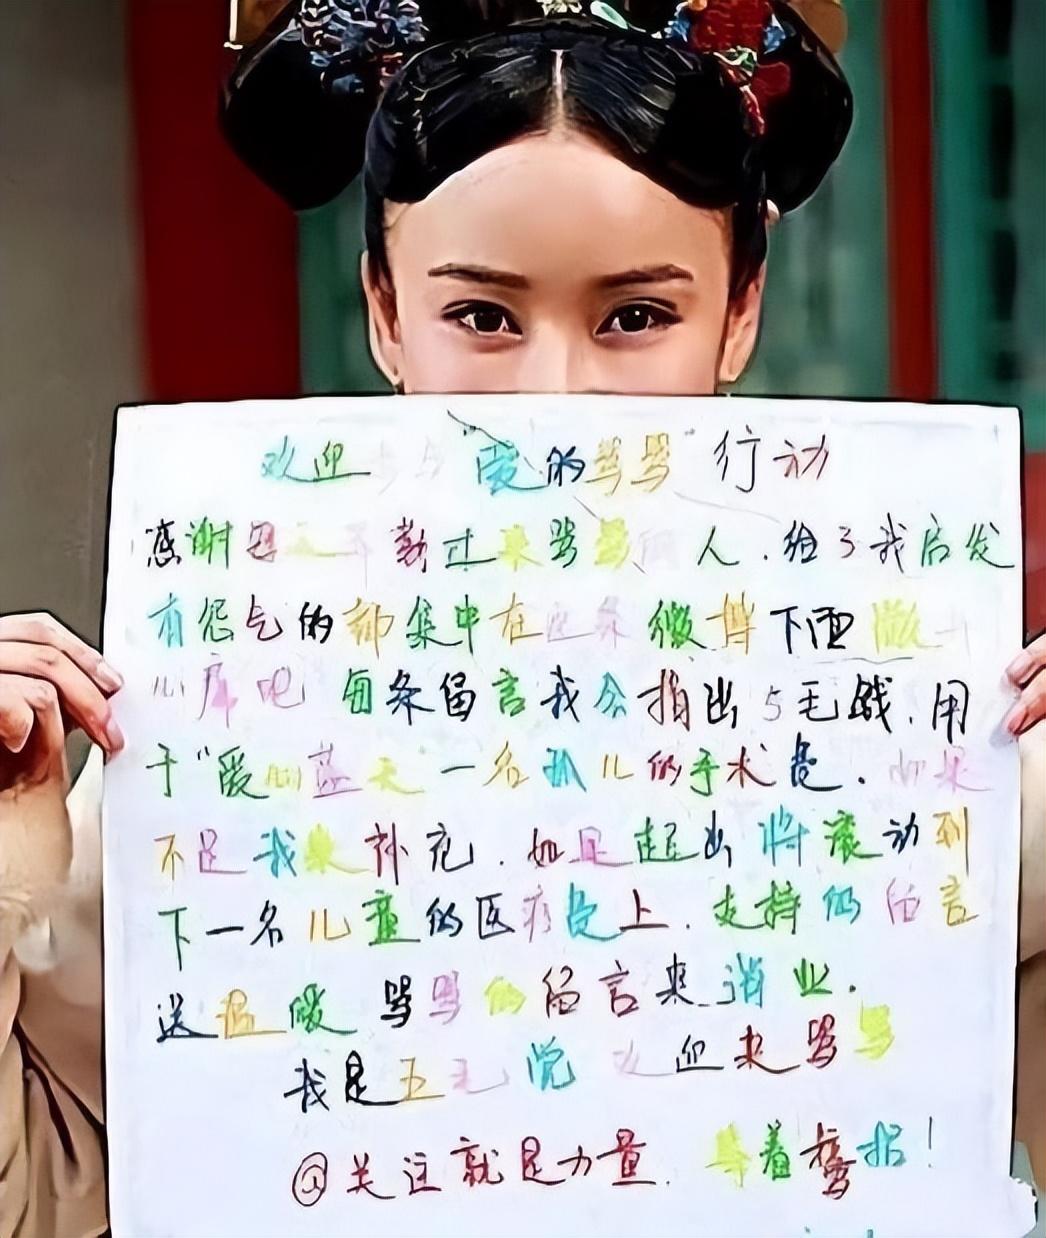 欢迎参与“爱的骂骂”行动
感谢四天不勤过来骂骂的人.给了我启发
有怨气的都集中在这条微博下面做
儿库吧 每条留言我会捐出5毛钱.用
于“爱心蓝天”一名孤儿的手术费.如果
不足我来补充.如是超出将滚动到
下一名儿童的医疗费上.支持的留言
送温暖 骂骂的留言来消业.
我是五毛党 欢迎来骂骂
@关注就是力量. 等着捷报!